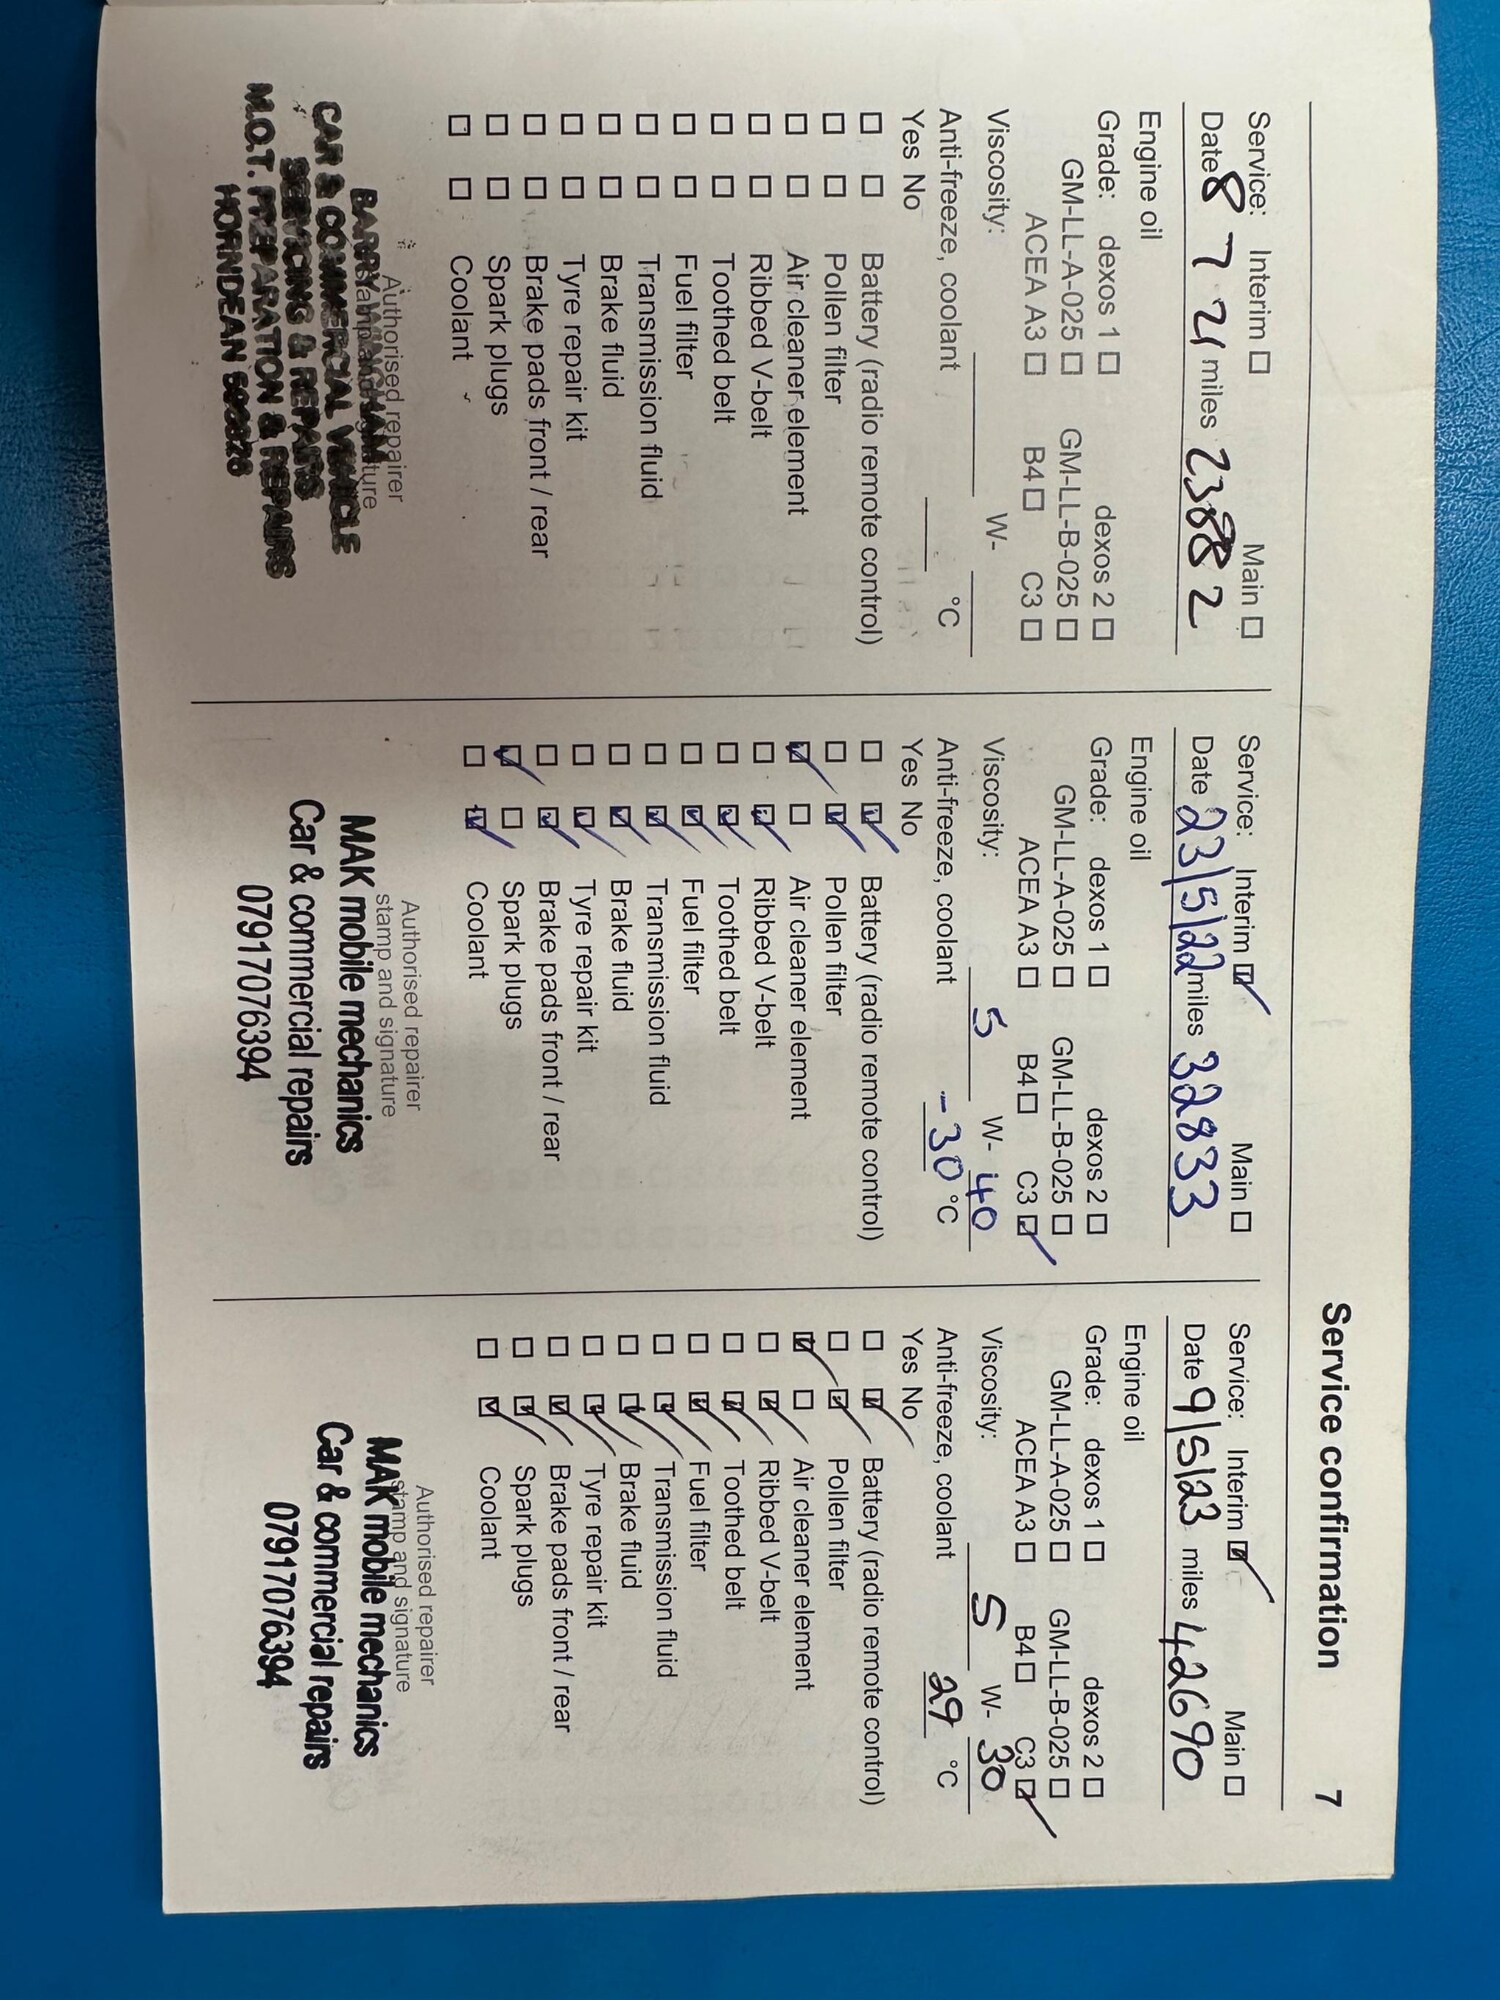 Service confirmation 7
Service: Interim ☐ Main ☐
Date 8 7 21 miles 23882
Engine oil
Grade: dexos 1 ☐ dexos 2 ☐
GM-LL-A-025 ☐ GM-LL-B-025 ☐
ACEA A3 ☐ B4 ☐ C3 ☐
Viscosity: W-
Anti-freeze, coolant °C
Yes No
☐ ☐ Battery (radio remote control)
☐ ☐ Pollen filter
☐ ☐ Air cleaner element
☐ ☐ Ribbed V-belt
☐ ☐ Toothed belt
☐ ☐ Fuel filter
☐ ☐ Transmission fluid
☐ ☐ Brake fluid
☐ ☐ Tyre repair kit
☐ ☐ Brake pads front / rear
☐ ☐ Spark plugs
☐ ☐ Coolant
Authorised repairer
BARRY
CAR & COMMERCIAL VEHICLE
SERVICING & REPAIRS
M.O.T. PREPARATION & REPAIRS
HORNDEAN
Service: Interim ☑ Main ☐
Date 23/5/22 miles 32833
Engine oil
Grade: dexos 1 ☐ dexos 2 ☐
GM-LL-A-025 ☐ GM-LL-B-025 ☐
ACEA A3 ☐ B4 ☐ C3 ☑
Viscosity: 5 W- 40
Anti-freeze, coolant -30 °C
Yes No
☐ ☑ Battery (radio remote control)
☐ ☑ Pollen filter
☑ ☐ Air cleaner element
☐ ☑ Ribbed V-belt
☐ ☑ Toothed belt
☐ ☑ Fuel filter
☐ ☑ Transmission fluid
☐ ☑ Brake fluid
☐ ☑ Tyre repair kit
☐ ☑ Brake pads front / rear
☑ ☐ Spark plugs
☐ ☑ Coolant
Authorised repairer
stamp and signature
MAK mobile mechanics
Car & commercial repairs
07917076394
Service: Interim ☑ Main ☐
Date 9/5/23 miles 42690
Engine oil
Grade: dexos 1 ☐ dexos 2 ☐
GM-LL-A-025 ☐ GM-LL-B-025 ☐
ACEA A3 ☐ B4 ☐ C3 ☑
Viscosity: 5 W- 30
Anti-freeze, coolant 29 °C
Yes No
☐ ☑ Battery (radio remote control)
☐ ☑ Pollen filter
☑ ☐ Air cleaner element
☐ ☑ Ribbed V-belt
☐ ☑ Toothed belt
☐ ☑ Fuel filter
☐ ☑ Transmission fluid
☐ ☑ Brake fluid
☐ ☑ Tyre repair kit
☐ ☑ Brake pads front / rear
☐ ☑ Spark plugs
☐ ☑ Coolant
Authorised repairer
stamp and signature
MAK mobile mechanics
Car & commercial repairs
07917076394